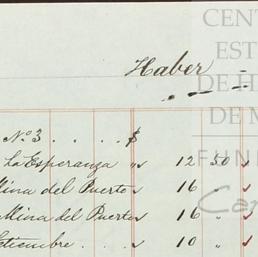 CENT
EST
DE H
DE M
FUN
Ca
Haber
Nº 3 . . . . $
La Esperanza " 12 50
Mina del Puerto 16 "
Mina del Puerto 16 "
etiembre . . . . 10 "